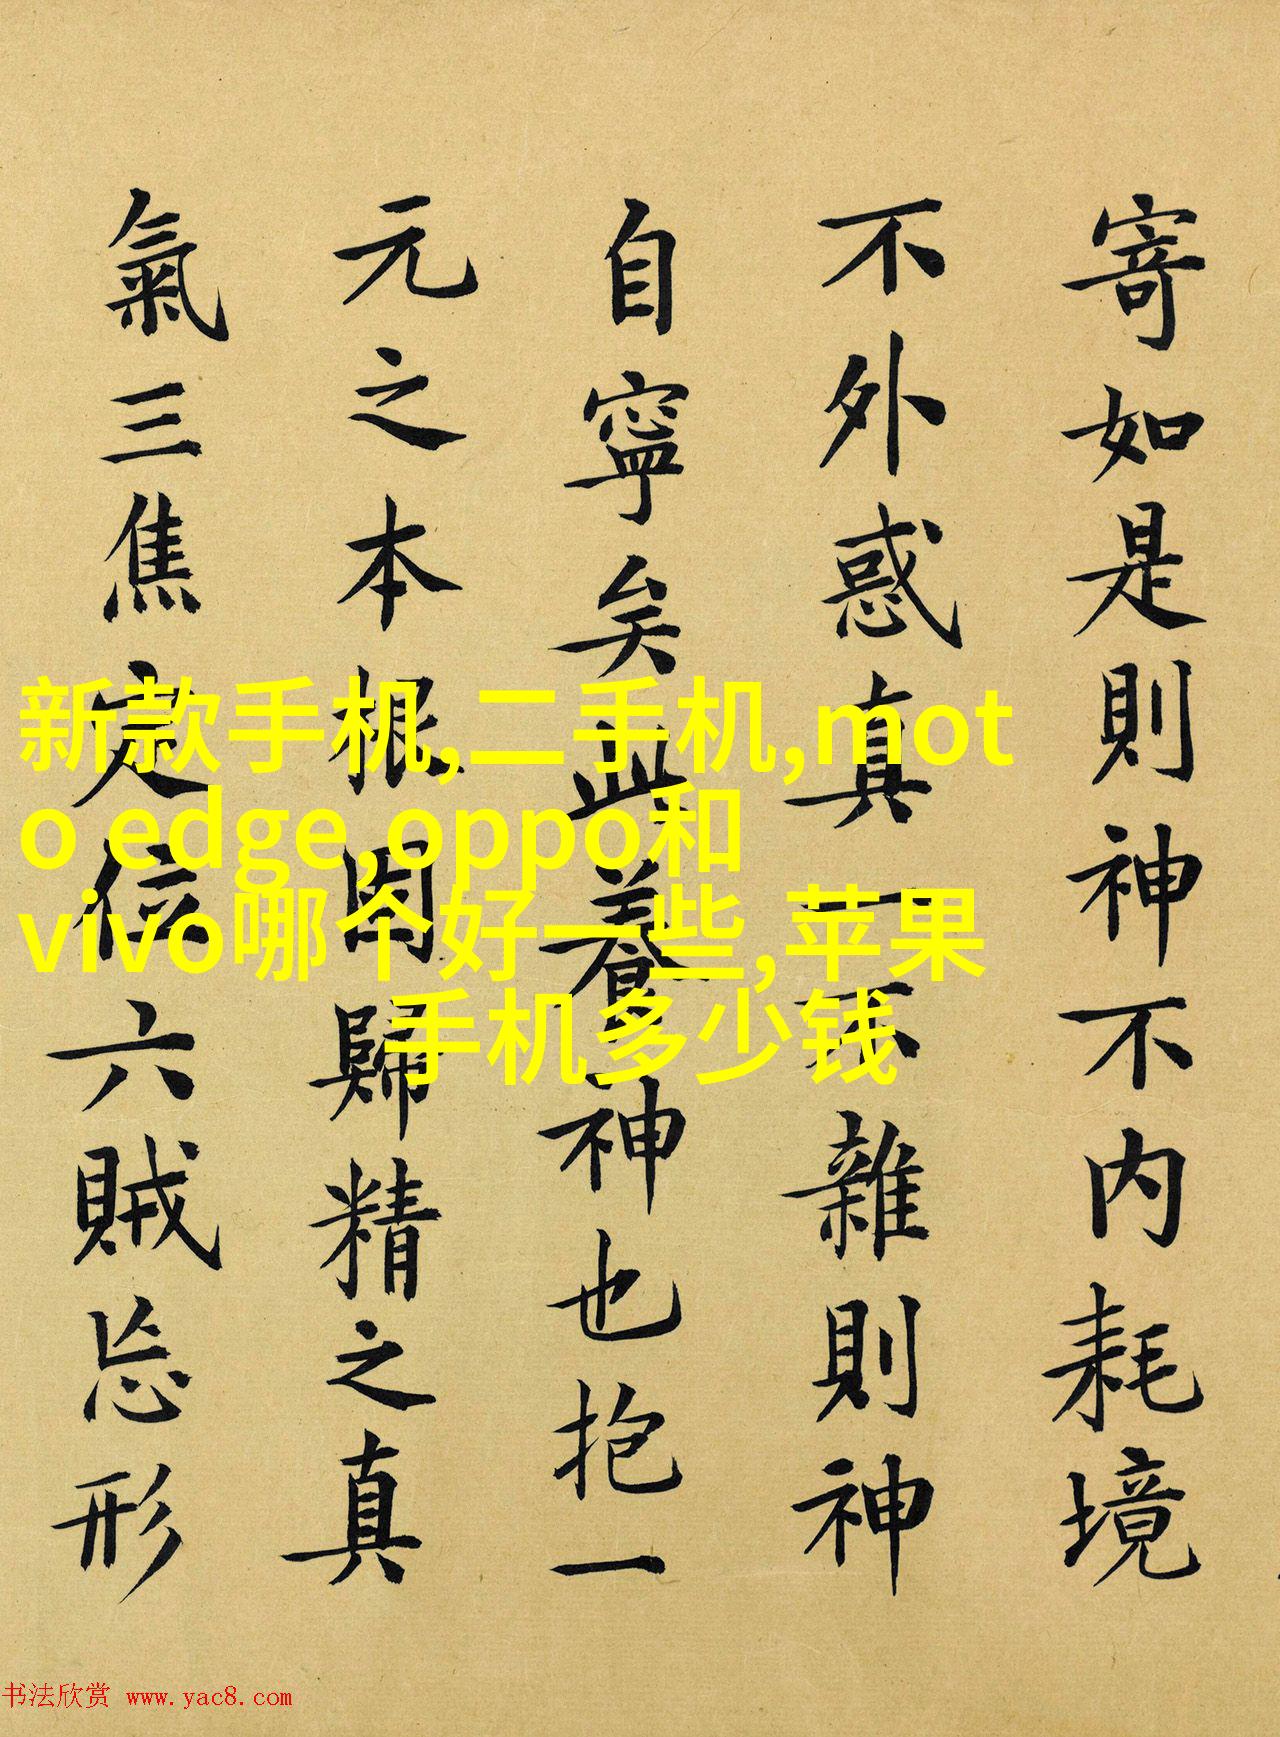 寄如是則神不内耗境
不外惑真一不雜則神
自寧矣此養神也抱一
元之本根固歸精之真
氣三焦定位六賊忘形
新款手机,二手机,mot
o edge,oppo和
vivo哪个好一些,苹果
手机多少钱
书法欣赏 www.yac8.com